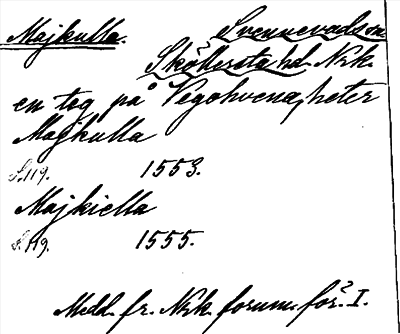 Majkulla. Svennevads sn
Sköllersta hd. Nrk.
en teg på Vegohvena, heter
Majkulla
S.119. 1553.
Majkiella
S.119. 1555.
Medd. fr. Nrk. fornm. för. I.